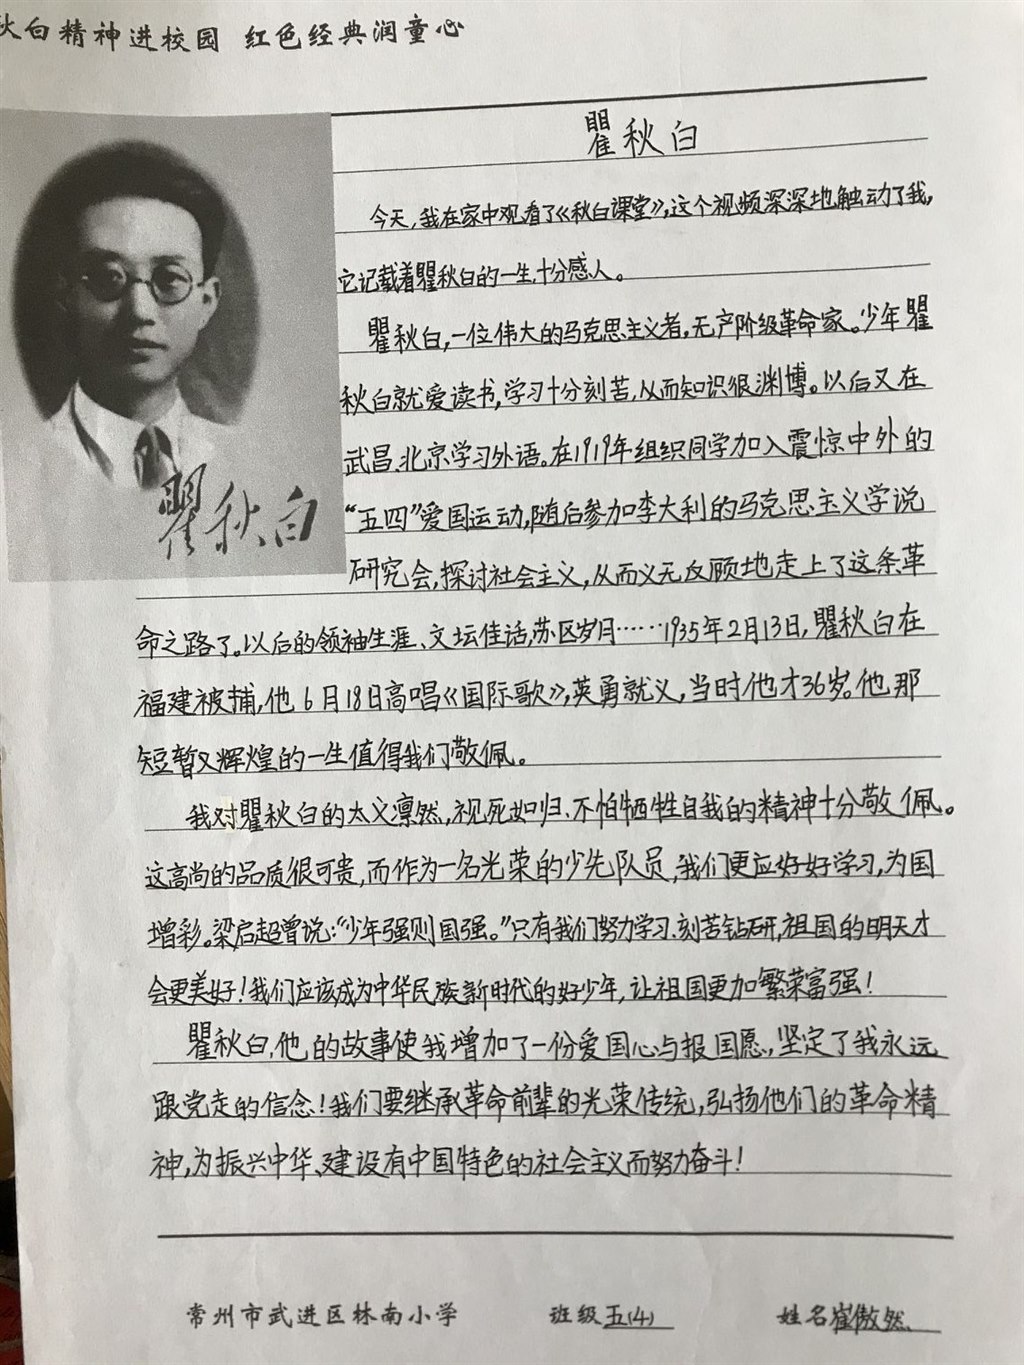 秋白精神进校园 红色经典润童心
瞿秋白
今天,我在家中观看了《秋白课堂》,这个视频深深地触动了我,
它记载着瞿秋白的一生,十分感人。
瞿秋白,一位伟大的马克思主义者,无产阶级革命家。少年瞿
秋白就爱读书,学习十分刻苦,从而知识很渊博。以后又在
武昌、北京学习外语。在1919年组织同学加入震惊中外的
“五四”爱国运动,随后参加李大利的马克思主义学说
研究会,探讨社会主义,从而义无反顾地走上了这条革
命之路了。以后的领袖生涯、文坛佳话,苏区岁月……1935年2月13日,瞿秋白在
福建被捕,他6月18日高唱《国际歌》,英勇就义,当时他才36岁。他那
短暂又辉煌的一生值得我们敬佩。
我对瞿秋白的大义凛然,视死如归、不怕牺牲自我的精神十分敬佩。
这高尚的品质很可贵,而作为一名光荣的少先队员,我们更应好好学习,为国
增彩。梁启超曾说:“少年强则国强。”只有我们努力学习、刻苦钻研,祖国的明天才
会更美好!我们应该成为中华民族新时代的好少年,让祖国更加繁荣富强!
瞿秋白,他的故事使我增加了一份爱国心与报国愿,坚定了我永远
跟党走的信念!我们要继承革命前辈的光荣传统,弘扬他们的革命精
神,为振兴中华、建设有中国特色的社会主义而努力奋斗!
瞿秋白
常州市武进区林南小学 班级五(4) 姓名崔傲然